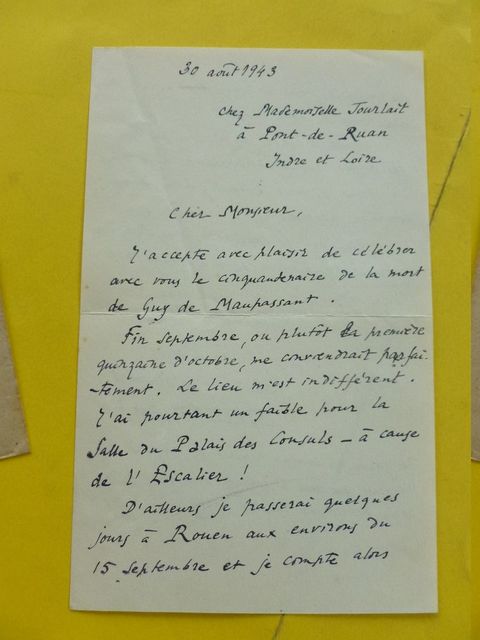 30 août 1943
chez Mademoiselle Tourlait
à Pont-de-Ruan
Indre et Loire
Cher Monsieur,
J'accepte avec plaisir de célébrer
avec vous le cinquantenaire de la mort
de Guy de Maupassant.
Fin septembre, ou plutôt la première
quinzaine d'octobre, me conviendrait parfai-
-tement. Le lieu m'est indifférent.
J'ai pourtant un faible pour la
Salle du Palais des Consuls - à cause
de l'Escalier !
D'ailleurs je passerai quelques
jours à Rouen aux environs du
15 septembre et je compte alors